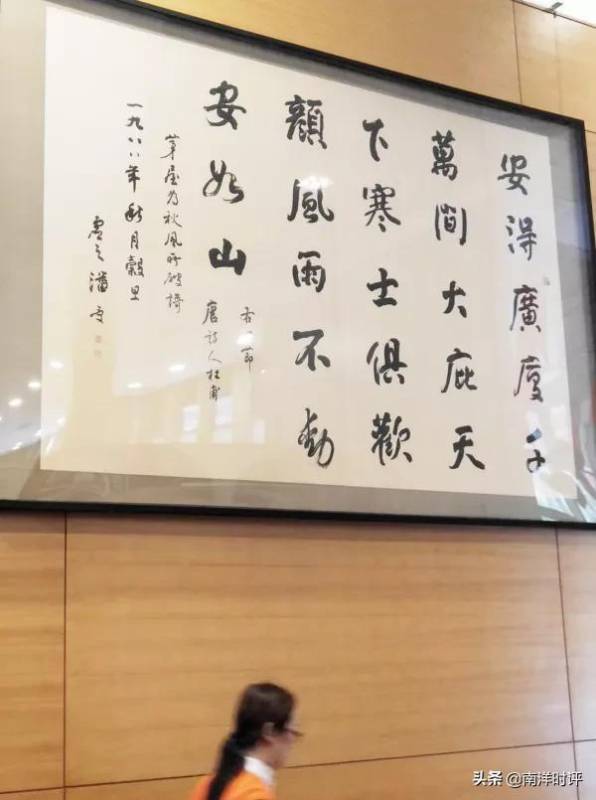 安得廣廈千
萬間大庇天
下寒士俱歡
顏風雨不動
安如山
右一節
唐詩人杜甫
茅屋为秋風所破謌
一九八八年秋月穀旦
虛之潘受
头条 @南洋时评